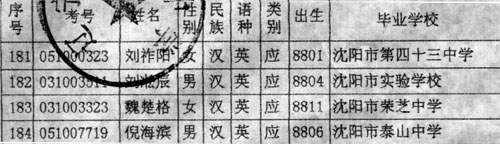 序号 考号 姓名 性别 民族 语种 类别 出生 毕业学校
181 051000323 刘祚阳 女 汉 英 应 8801 沈阳市第四十三中学
182 031003511 刘淞辰 男 汉 英 应 8804 沈阳市实验学校
183 031003323 魏楚格 女 汉 英 应 8811 沈阳市荣芝中学
184 051007719 倪海滨 男 汉 英 应 8806 沈阳市泰山中学